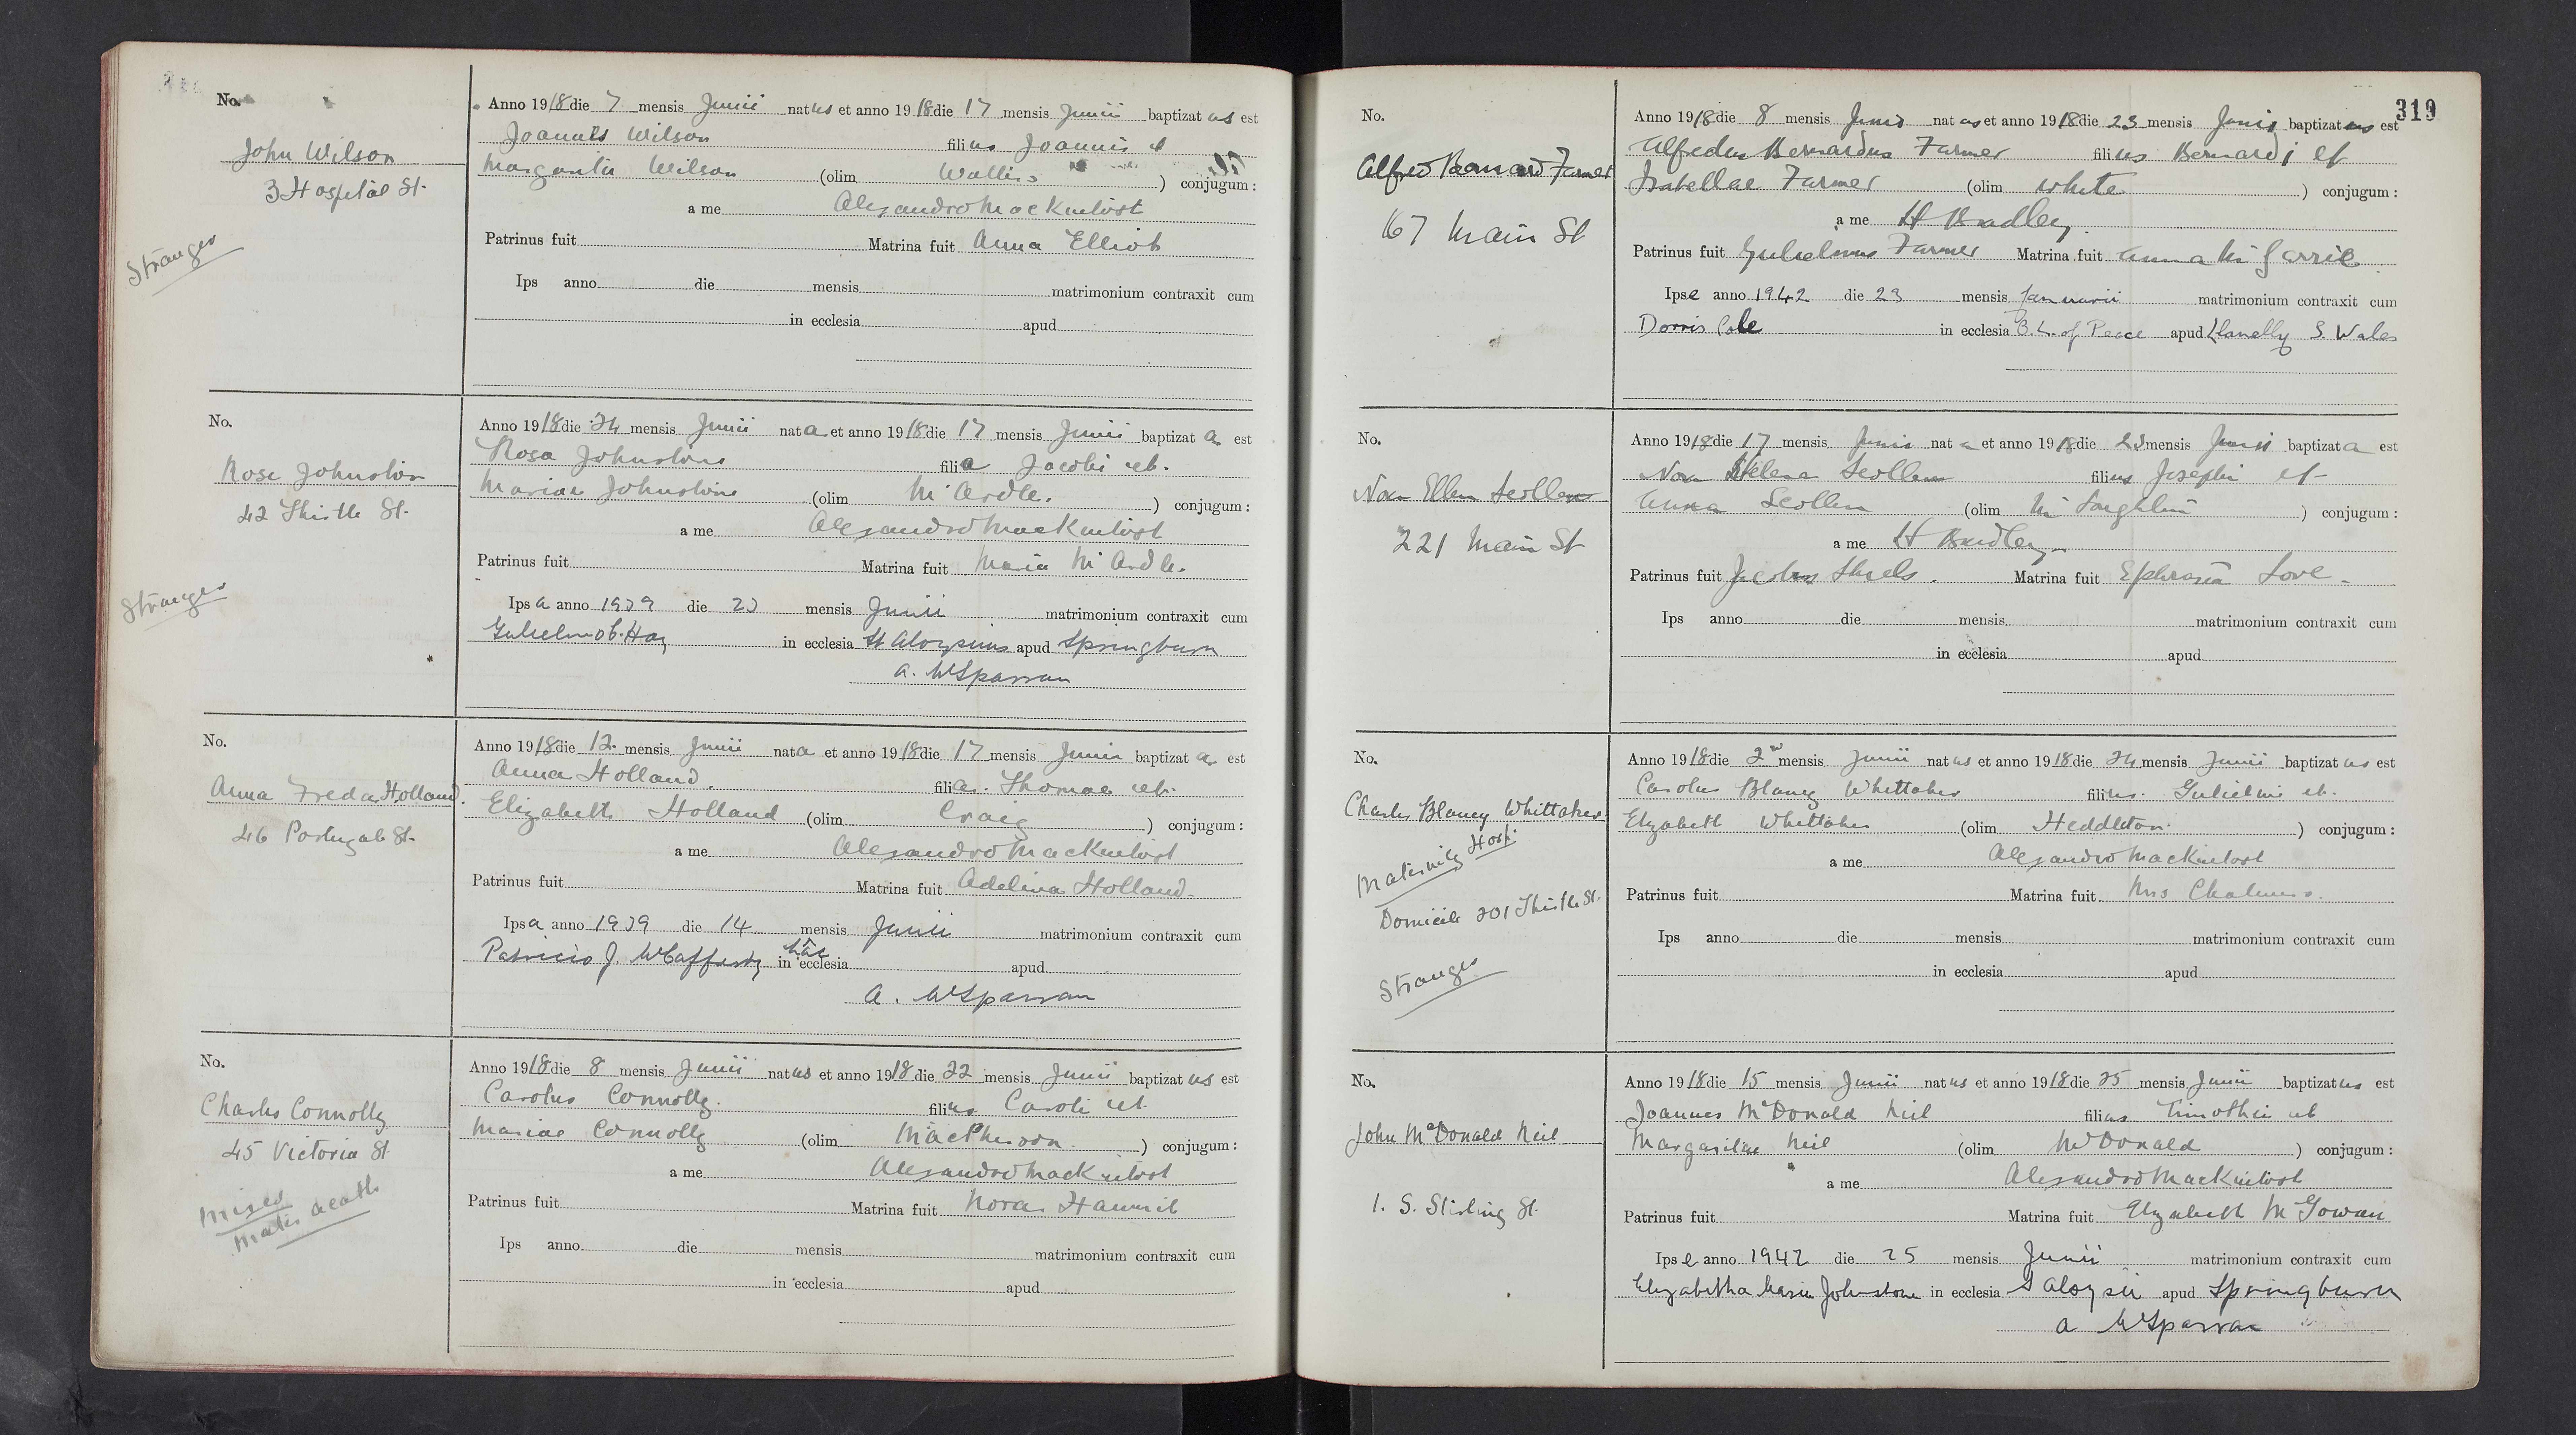 No.
John Wilson
3 Hospital St.
Stranger
Anno 1918 die 7 mensis Junii natus et anno 1918 die 17 mensis Junii baptizatus est
Joannes Wilson filius Joannis et
Margarita Wilson (olim Wallis) conjugum:
a me Alexandro Mackintosh
Patrinus fuit Matrina fuit Anna Elliot
Ips anno die mensis matrimonium contraxit cum
in ecclesia apud
No.
Rose Johnston
42 Thistle St.
Stranger
Anno 1918 die 24 mensis Junii nata et anno 1918 die 17 mensis Junii baptizata est
Rosa Johnstone filia Jacobi et.
Mariae Johnstone (olim McArdle.) conjugum:
a me Alexandro Mackintosh
Patrinus fuit Matrina fuit Maria McArdle.
Ipsa anno 1939 die 23 mensis Junii matrimonium contraxit cum
Gulielmo Hay in ecclesia St Aloysius apud Springburn
A. McSparran
No.
Anna Freda Holland.
46 Portugal St.
Anno 1918 die 12. mensis Junii nata et anno 1918 die 17 mensis Junii baptizata est
Anna Holland. filia. Thomae et.
Elizabeth Holland (olim Craig) conjugum:
a me Alexandro Mackintosh
Patrinus fuit Matrina fuit Adelina Holland.
Ipsa anno 1939 die 14 mensis Junii matrimonium contraxit cum
Patricio J. McCafferty in hac ecclesia apud
A. McSparran
No.
Charles Connolly
45 Victoria St.
mixed
Anno 1918 die 8 mensis Junii natus et anno 1918 die 22 mensis Junii baptizatus est
Carolus Connolly. filius Caroli et
Mariae Connolly (olim MacPherson) conjugum:
a me Alexandro Mackintosh
Patrinus fuit Matrina fuit Nora
Ips anno die mensis matrimonium contraxit cum
in ecclesia apud
319
No.
Alfred Bernard Farmer
167 Main St
Anno 1918 die 8 mensis Junii natus et anno 1918 die 23 mensis Junii baptizatus est
Alfredus Bernardus Farmer filius Bernardi et
Isabellae Farmer (olim White) conjugum:
a me H Bradley.
Patrinus fuit Gulielmus Farmer Matrina fuit Anna McGarrie
Ipse anno 1942 die 23 mensis Januarii matrimonium contraxit cum
Dorris Cole in ecclesia of Peace apud Llanelly S. Wales
No.
Nora Ellen Scollen
221 Main St
Anno 1918 die 17 mensis Junii nata et anno 1918 die 23 mensis Junii baptizata est
Nora Helena Scollen filius Josephi et
Anna Scollen (olim McLaughlin) conjugum:
a me H Bradley
Patrinus fuit Jacobus Shiels. Matrina fuit Ephrasia Love.
Ips anno die mensis matrimonium contraxit cum
in ecclesia apud
No.
Charles Blaney Whittaker
Maternity Hosp.
Domicile 201 Thistle St.
Stranger
Anno 1918 die 2 mensis Junii natus et anno 1918 die 24 mensis Junii baptizatus est
Carolus Blaney Whittaker filius. Gulielmi et.
Elizabeth Whittaker (olim Heddleton.) conjugum:
a me Alexandro Mackintosh
Patrinus fuit Matrina fuit Mrs Chalmers.
Ips anno die mensis matrimonium contraxit cum
in ecclesia apud
No.
John McDonald Neil
1. S. Stirling St.
Anno 1918 die 15 mensis Junii natus et anno 1918 die 25 mensis Junii baptizatus est
Joannes McDonald Neil filius Timothei et
Margaritae Neil (olim McDonald) conjugum:
a me Alexandro Mackintosh
Patrinus fuit Matrina fuit Elizabeth McGowan
Ipse anno 1942 die 25 mensis Junii matrimonium contraxit cum
Elizabetha Maria Johnstone in ecclesia S Aloysii apud Springburn
A McSparran